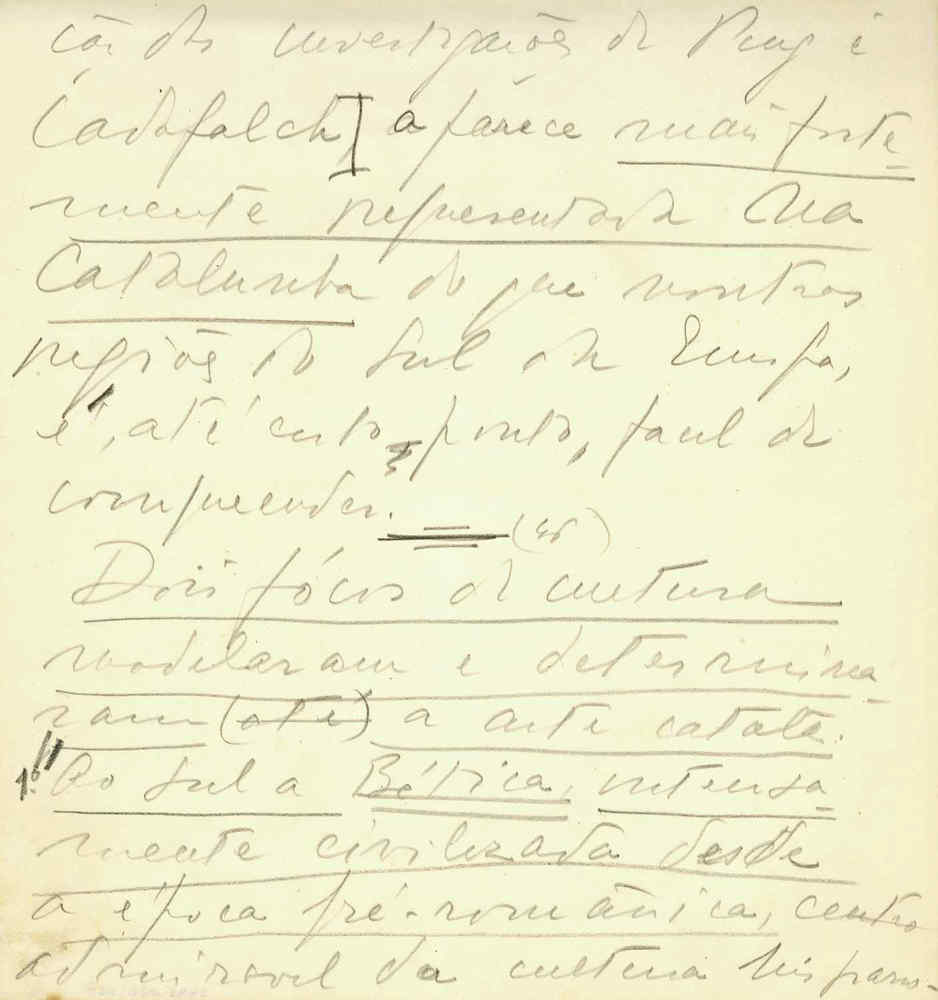 ção das investigações de Puig i
Cadafalch] aparece mais forte-
mente representada na
Catalunha do que noutras
regiões do Sul da Europa,
é, até certo ponto, facil de
compreender.
(46)
Dois fócos de cultura
modelaram e determina-
ram (até) a arte catalã.
1.º Ao sul a Bética, intensa-
mente civilizada desde
a época pré-românica, centro
admiravel da cultura hispano-